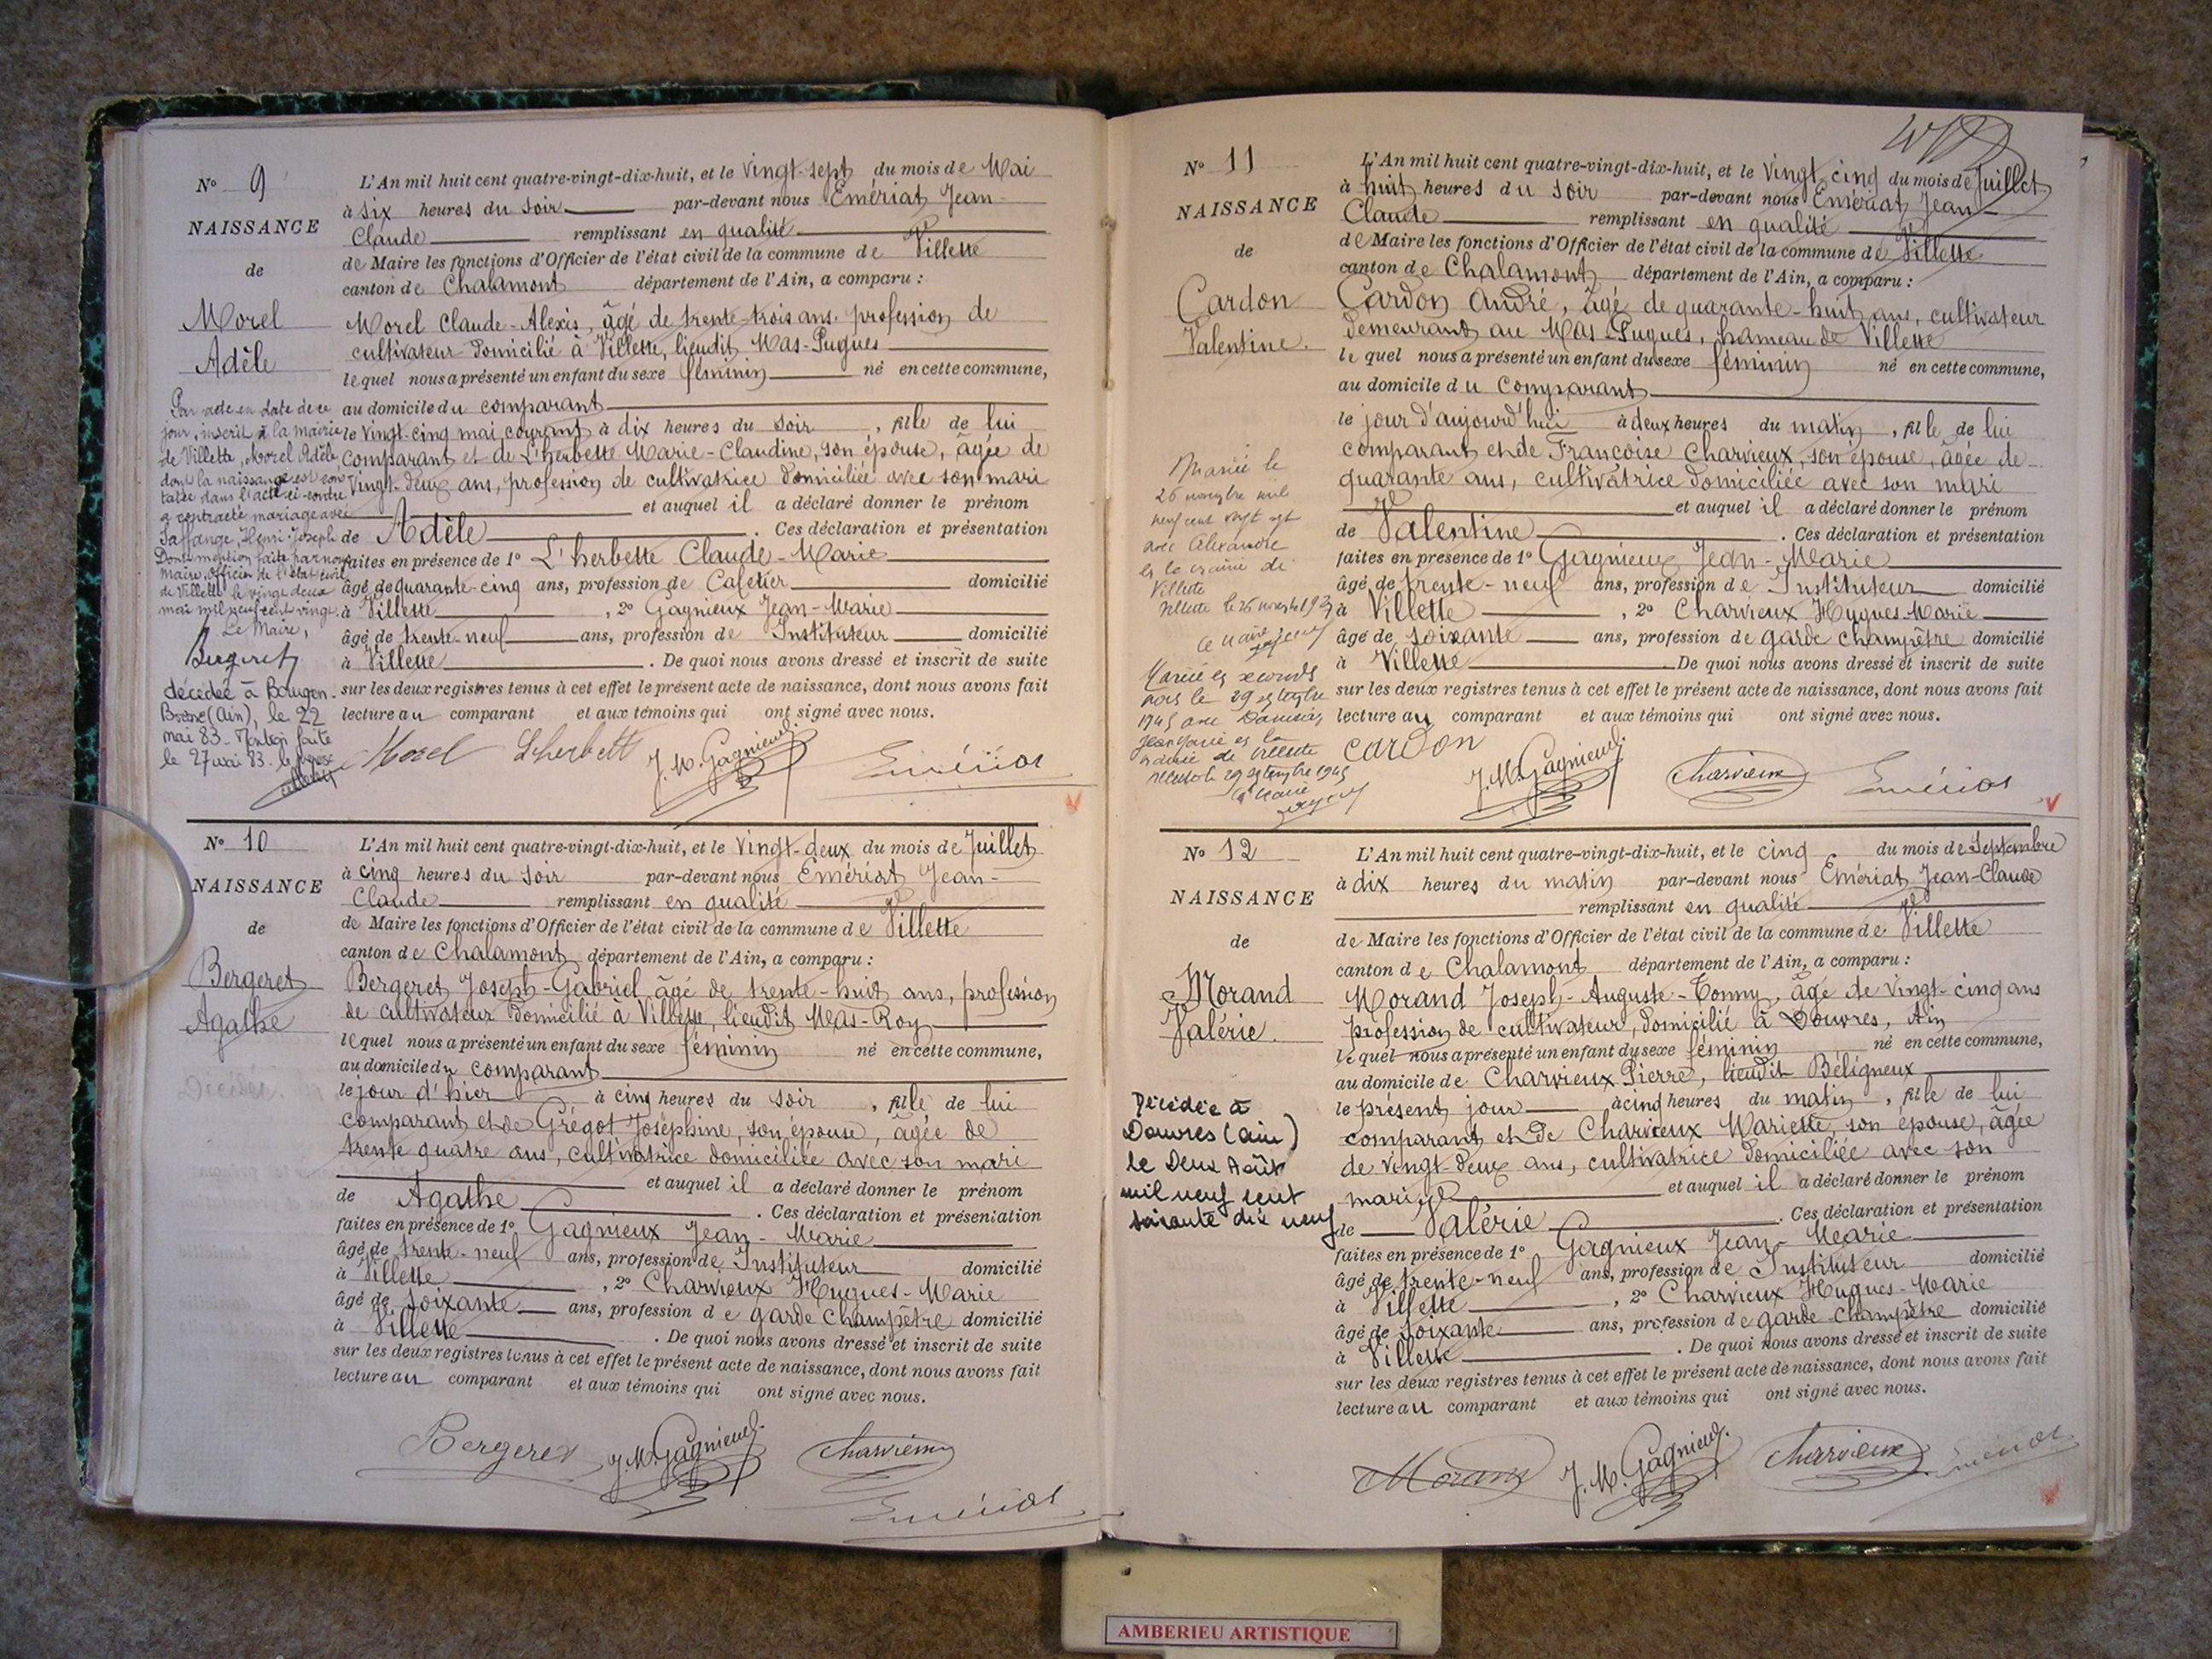 N° 9
NAISSANCE
de
Morel
Adèle
L'An mil huit cent quatre-vingt-dix-huit, et le vingt-sept du mois de Mai
à six heures du soir par-devant nous Emériat Jean-
Claude remplissant en qualité
de Maire les fonctions d'Officier de l'état civil de la commune de Villette
canton de Chalamont département de l'Ain, a comparu :
Morel Claude-Alexis, âgé de trente-trois ans. profession de
cultivateur domicilié à Villette, lieudit Mas-Pugues
lequel nous a présenté un enfant du sexe féminin né en cette commune,
au domicile du comparant
le vingt-cinq mai courant à dix heures du soir, fille de lui
comparant et de L'herbette Marie-Claudine, son épouse, âgée de
vingt-deux ans, profession de cultivatrice domiciliée avec son mari
et auquel il a déclaré donner le prénom
de Adèle. Ces déclaration et présentation
faites en présence de 1° L'herbette Claude-Marie
âgé de quarante-cinq ans, profession de Cafetier domicilié
à Villette, 2° Gagnieux Jean-Marie
âgé de trente-neuf ans, profession de Instituteur domicilié
à Villette. De quoi nous avons dressé et inscrit de suite
sur les deux registres tenus à cet effet le présent acte de naissance, dont nous avons fait
lecture au comparant et aux témoins qui ont signé avec nous.
Morel Lherbett J. M. Gagnieux Emériat
Par acte en date de ce
jour, inscrit à la mairie
de Villette, Morel Adèle
dont la naissance est cons
tatée dans l'acte ci-contre
a contracté mariage avec
Saffange, Henri-Joseph
Dont mention faite par nous
Maire, Officier de l'état civil
de Villette le vingt deux
mai mil neuf cent vingt.
Le Maire,
Bergeret
décédée à Bourg en
Bresse (Ain), le 22
mai 83. Mention faite
le 27 mai 83.
N° 10
NAISSANCE
de
Bergeret
Agathe
L'An mil huit cent quatre-vingt-dix-huit, et le vingt-deux du mois de Juillet
à cinq heures du soir par-devant nous Emériat Jean-
Claude remplissant en qualité
de Maire les fonctions d'Officier de l'état civil de la commune de Villette
canton de Chalamont département de l'Ain, a comparu :
Bergeret Joseph-Gabriel âgé de trente-huit ans, profession
de cultivateur domicilié à Villette, lieudit Mas-Roy
lequel nous a présenté un enfant du sexe féminin né en cette commune,
au domicile du comparant
le jour d'hier à cinq heures du soir, fille de lui
comparant et de Grégot Joséphine, son épouse, âgée de
trente quatre ans, cultivatrice domiciliée avec son mari
et auquel il a déclaré donner le prénom
de Agathe. Ces déclaration et présentation
faites en présence de 1° Gagnieux Jean-Marie
âgé de trente-neuf ans, profession de Instituteur domicilié
à Villette, 2° Charvieux Hugues-Marie
âgé de soixante ans, profession de garde champêtre domicilié
à Villette. De quoi nous avons dressé et inscrit de suite
sur les deux registres tenus à cet effet le présent acte de naissance, dont nous avons fait
lecture au comparant et aux témoins qui ont signé avec nous.
Bergeret J. M. Gagnieux Charvieux
Emériat
N° 11
NAISSANCE
de
Cardon
Valentine.
L'An mil huit cent quatre-vingt-dix-huit, et le vingt cinq du mois de Juillet
à huit heures du soir par-devant nous Emériat Jean-
Claude remplissant en qualité
de Maire les fonctions d'Officier de l'état civil de la commune de Villette
canton de Chalamont département de l'Ain, a comparu :
Cardon André, âgé de quarante-huit ans, cultivateur
demeurant au Mas-Pugues, hameau de Villette
lequel nous a présenté un enfant du sexe féminin né en cette commune,
au domicile du comparant
le jour d'aujourd'hui à deux heures du matin, fille de lui
comparant et de Françoise Charvieux, son épouse, âgée de
quarante ans, cultivatrice domiciliée avec son mari
et auquel il a déclaré donner le prénom
de Valentine. Ces déclaration et présentation
faites en présence de 1° Gagnieux Jean-Marie
âgé de trente-neuf ans, profession de Instituteur domicilié
à Villette, 2° Charvieux Hugues-Marie
âgé de soixante ans, profession de garde champêtre domicilié
à Villette. De quoi nous avons dressé et inscrit de suite
sur les deux registres tenus à cet effet le présent acte de naissance, dont nous avons fait
lecture au comparant et aux témoins qui ont signé avec nous.
Cardon J. M. Gagnieux Charvieux Emériat
Mariée le
26 novembre mil
neuf cent vingt sept
avec Alexandre
en la mairie de
Villette
Villette le 26 novembre 1927
Le Maire
Mariée en secondes
noces le 29 septembre
1945 avec
Jean Marie en la
mairie de Villette
Villette le 29 septembre 1945
Le Maire
N° 12
NAISSANCE
de
Morand
Valérie.
L'An mil huit cent quatre-vingt-dix-huit, et le cinq du mois de Septembre
à dix heures du matin par-devant nous Emériat Jean-Claude
remplissant en qualité
de Maire les fonctions d'Officier de l'état civil de la commune de Villette
canton de Chalamont département de l'Ain, a comparu :
Morand Joseph-Auguste-Tonny, âgé de vingt-cinq ans
profession de cultivateur, domicilié à Douvres, Ain
lequel nous a présenté un enfant du sexe féminin né en cette commune,
au domicile de Charvieux Pierre, lieudit Béligneux
le présent jour à cinq heures du matin, fille de lui
comparant et de Charvieux Mariette, son épouse, âgée
de vingt-deux ans, cultivatrice domiciliée avec son
mari et auquel il a déclaré donner le prénom
de Valérie. Ces déclaration et présentation
faites en présence de 1° Gagnieux Jean-Marie
âgé de trente-neuf ans, profession de Instituteur domicilié
à Villette, 2° Charvieux Hugues-Marie
âgé de soixante ans, profession de garde-champêtre domicilié
à Villette. De quoi nous avons dressé et inscrit de suite
sur les deux registres tenus à cet effet le présent acte de naissance, dont nous avons fait
lecture au comparant et aux témoins qui ont signé avec nous.
Morand J. M. Gagnieux Charvieux Emériat
Décédée à
Douvres (Ain)
le Deux Août
mil neuf cent
soixante dix neuf
AMBERIEU ARTISTIQUE